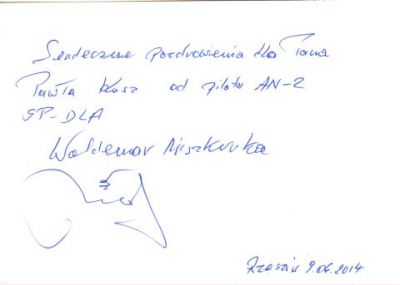 Serdeczne pozdrowienia dla Pana
Pawła Kosz od pilota AN-2
SP-DLA
Waldemar Miszkurka
Rzeszów 9.06.2014